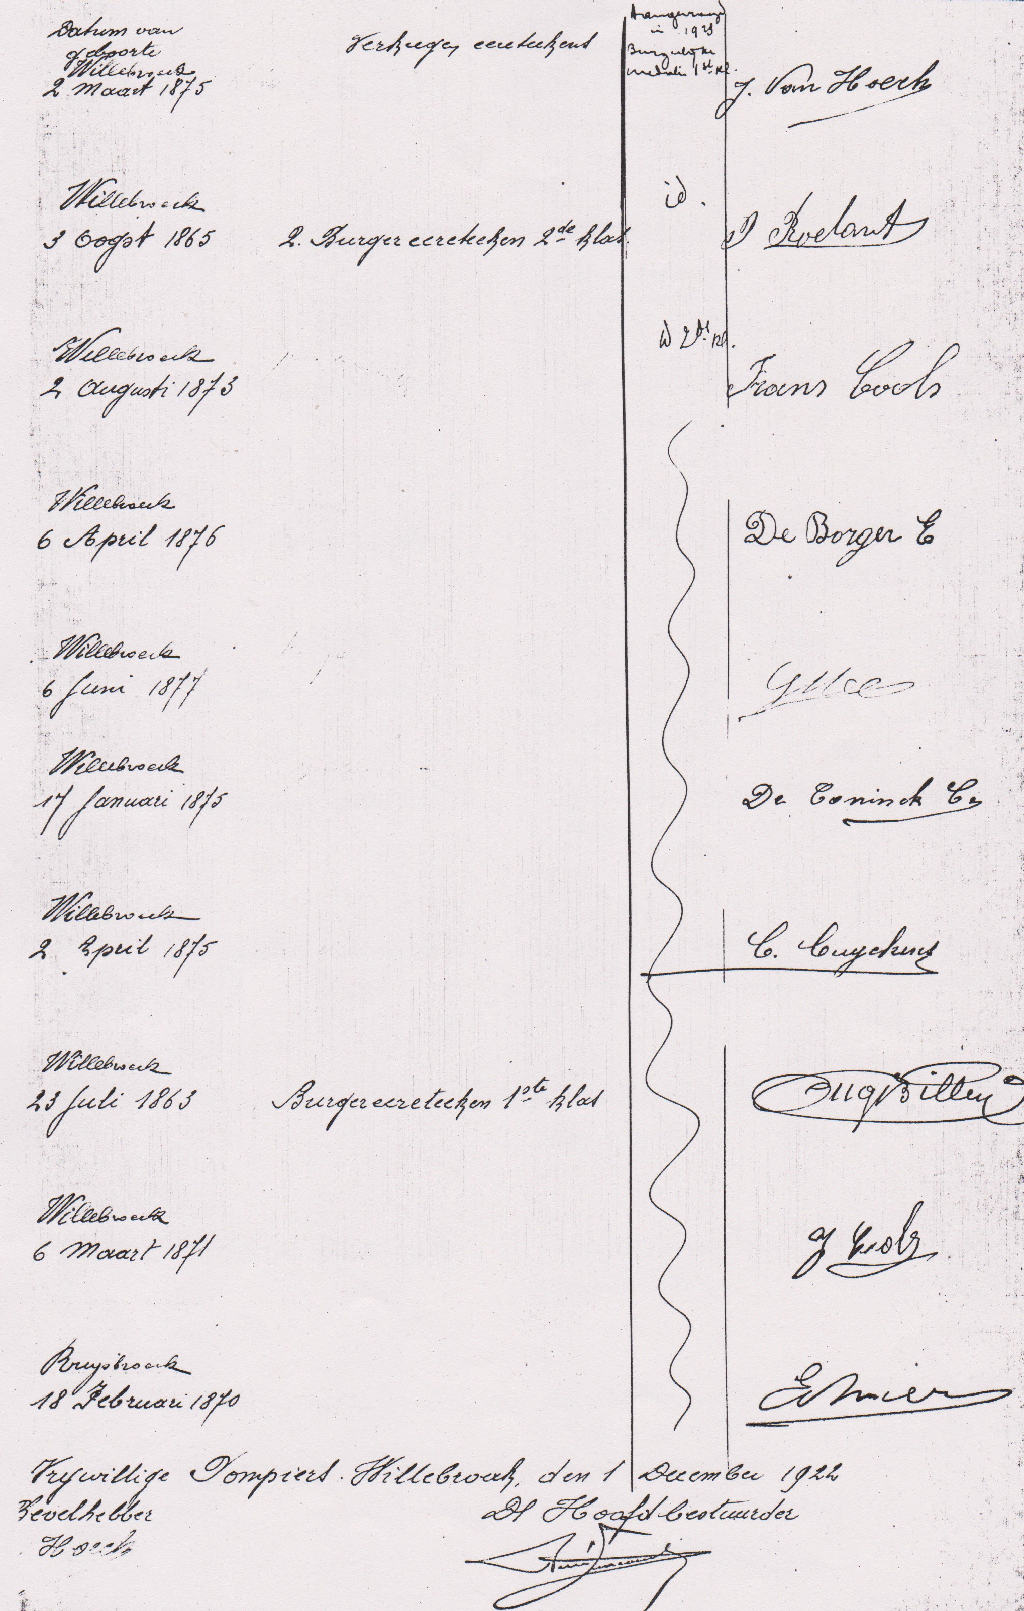 Datum van
geboorte
Verkregen eereteekens
Aangevraagd
in 1923
Burgerlijke
medalie 1ste kl.
Willebroeck
2 Maart 1875
J. Van Hoeck
Willebroeck
id.
3 Oogst 1865
2. Burgereereteeken 2de klas
Roelant
Willebroeck
id 2de kl.
2 Augusti 1873
Frans Cools
Willebroeck
6 April 1876
De Borger E
Willebroeck
6 Juni 1877
Willebroeck
17 Januari 1875
De Coninck
Willebroeck
2 April 1875
C. Cuyckens
Willebroeck
23 Juli 1863
Burgereereteeken 1ste klas
Willebroeck
6 Maart 1871
J Cools
Ruysbroeck
18 Februari 1870
Vrijwillige Pompiers. Willebroeck, den 1 December 1922
Bevelhebber
De Hoofdbestuurder
Hoeck